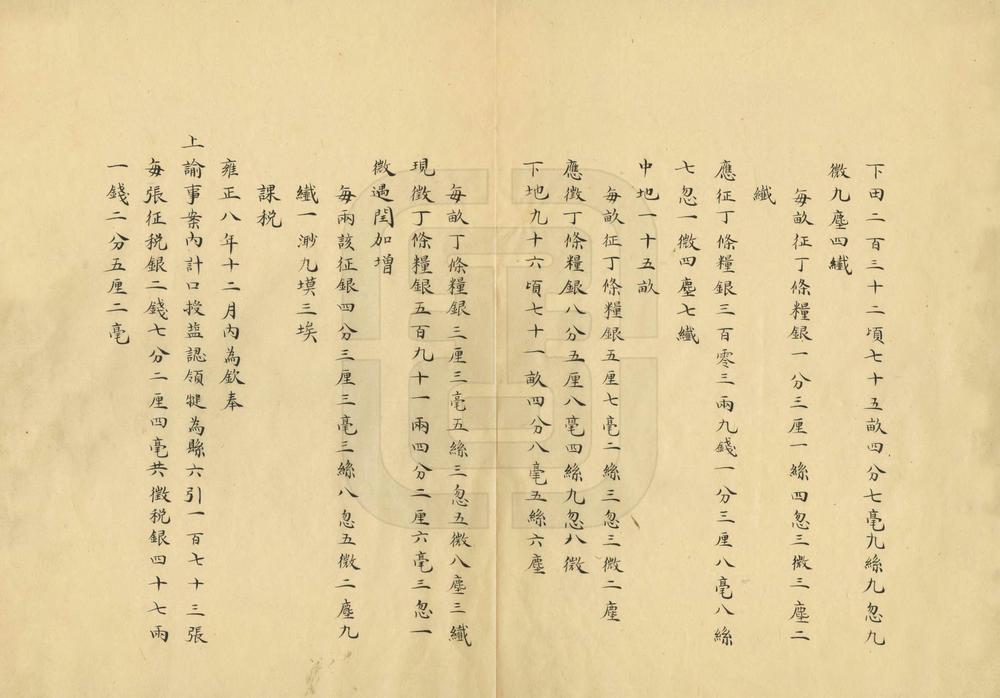 下田二百三十二頃七十五畝四分七毫九絲九忽九
微九塵四纖
每畝征丁條糧銀一分三厘一絲四忽三微三塵二
纖
應征丁條糧銀三百零三兩九錢一分三厘八毫八絲
七忽一微四塵七纖
中地一十五畝
每畝征丁條糧銀五厘七毫二絲三忽三微二塵
應徵丁條糧銀八分五厘八毫四絲九忽八微
下地九十六頃七十一畝四分八毫五絲六塵
每畝丁條糧銀三厘三毫五絲三忽五微八塵三纖
現徵丁條糧銀五百九十一兩四分二厘六毫三忽一
微遇閏加增
每兩該征銀四分三厘三毫三絲八忽五微二塵九
纖一渺九塻三埃
課税
雍正八年十二月內為欽奉
上諭事案內計口授盐認領犍為縣六引一百七十三張
每張征税銀二錢七分二厘四毫共徵税銀四十七兩
一錢二分五厘二毫